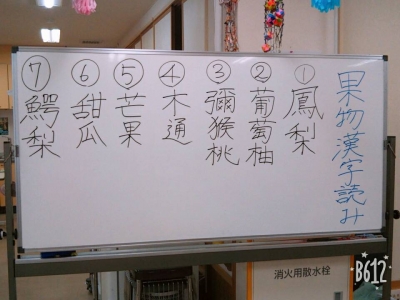 果物漢字読み
①鳳梨
②葡萄柚
③彌猴桃
④木通
⑤芒果
⑥甜瓜
⑦鰐梨
消火用散水栓
B612